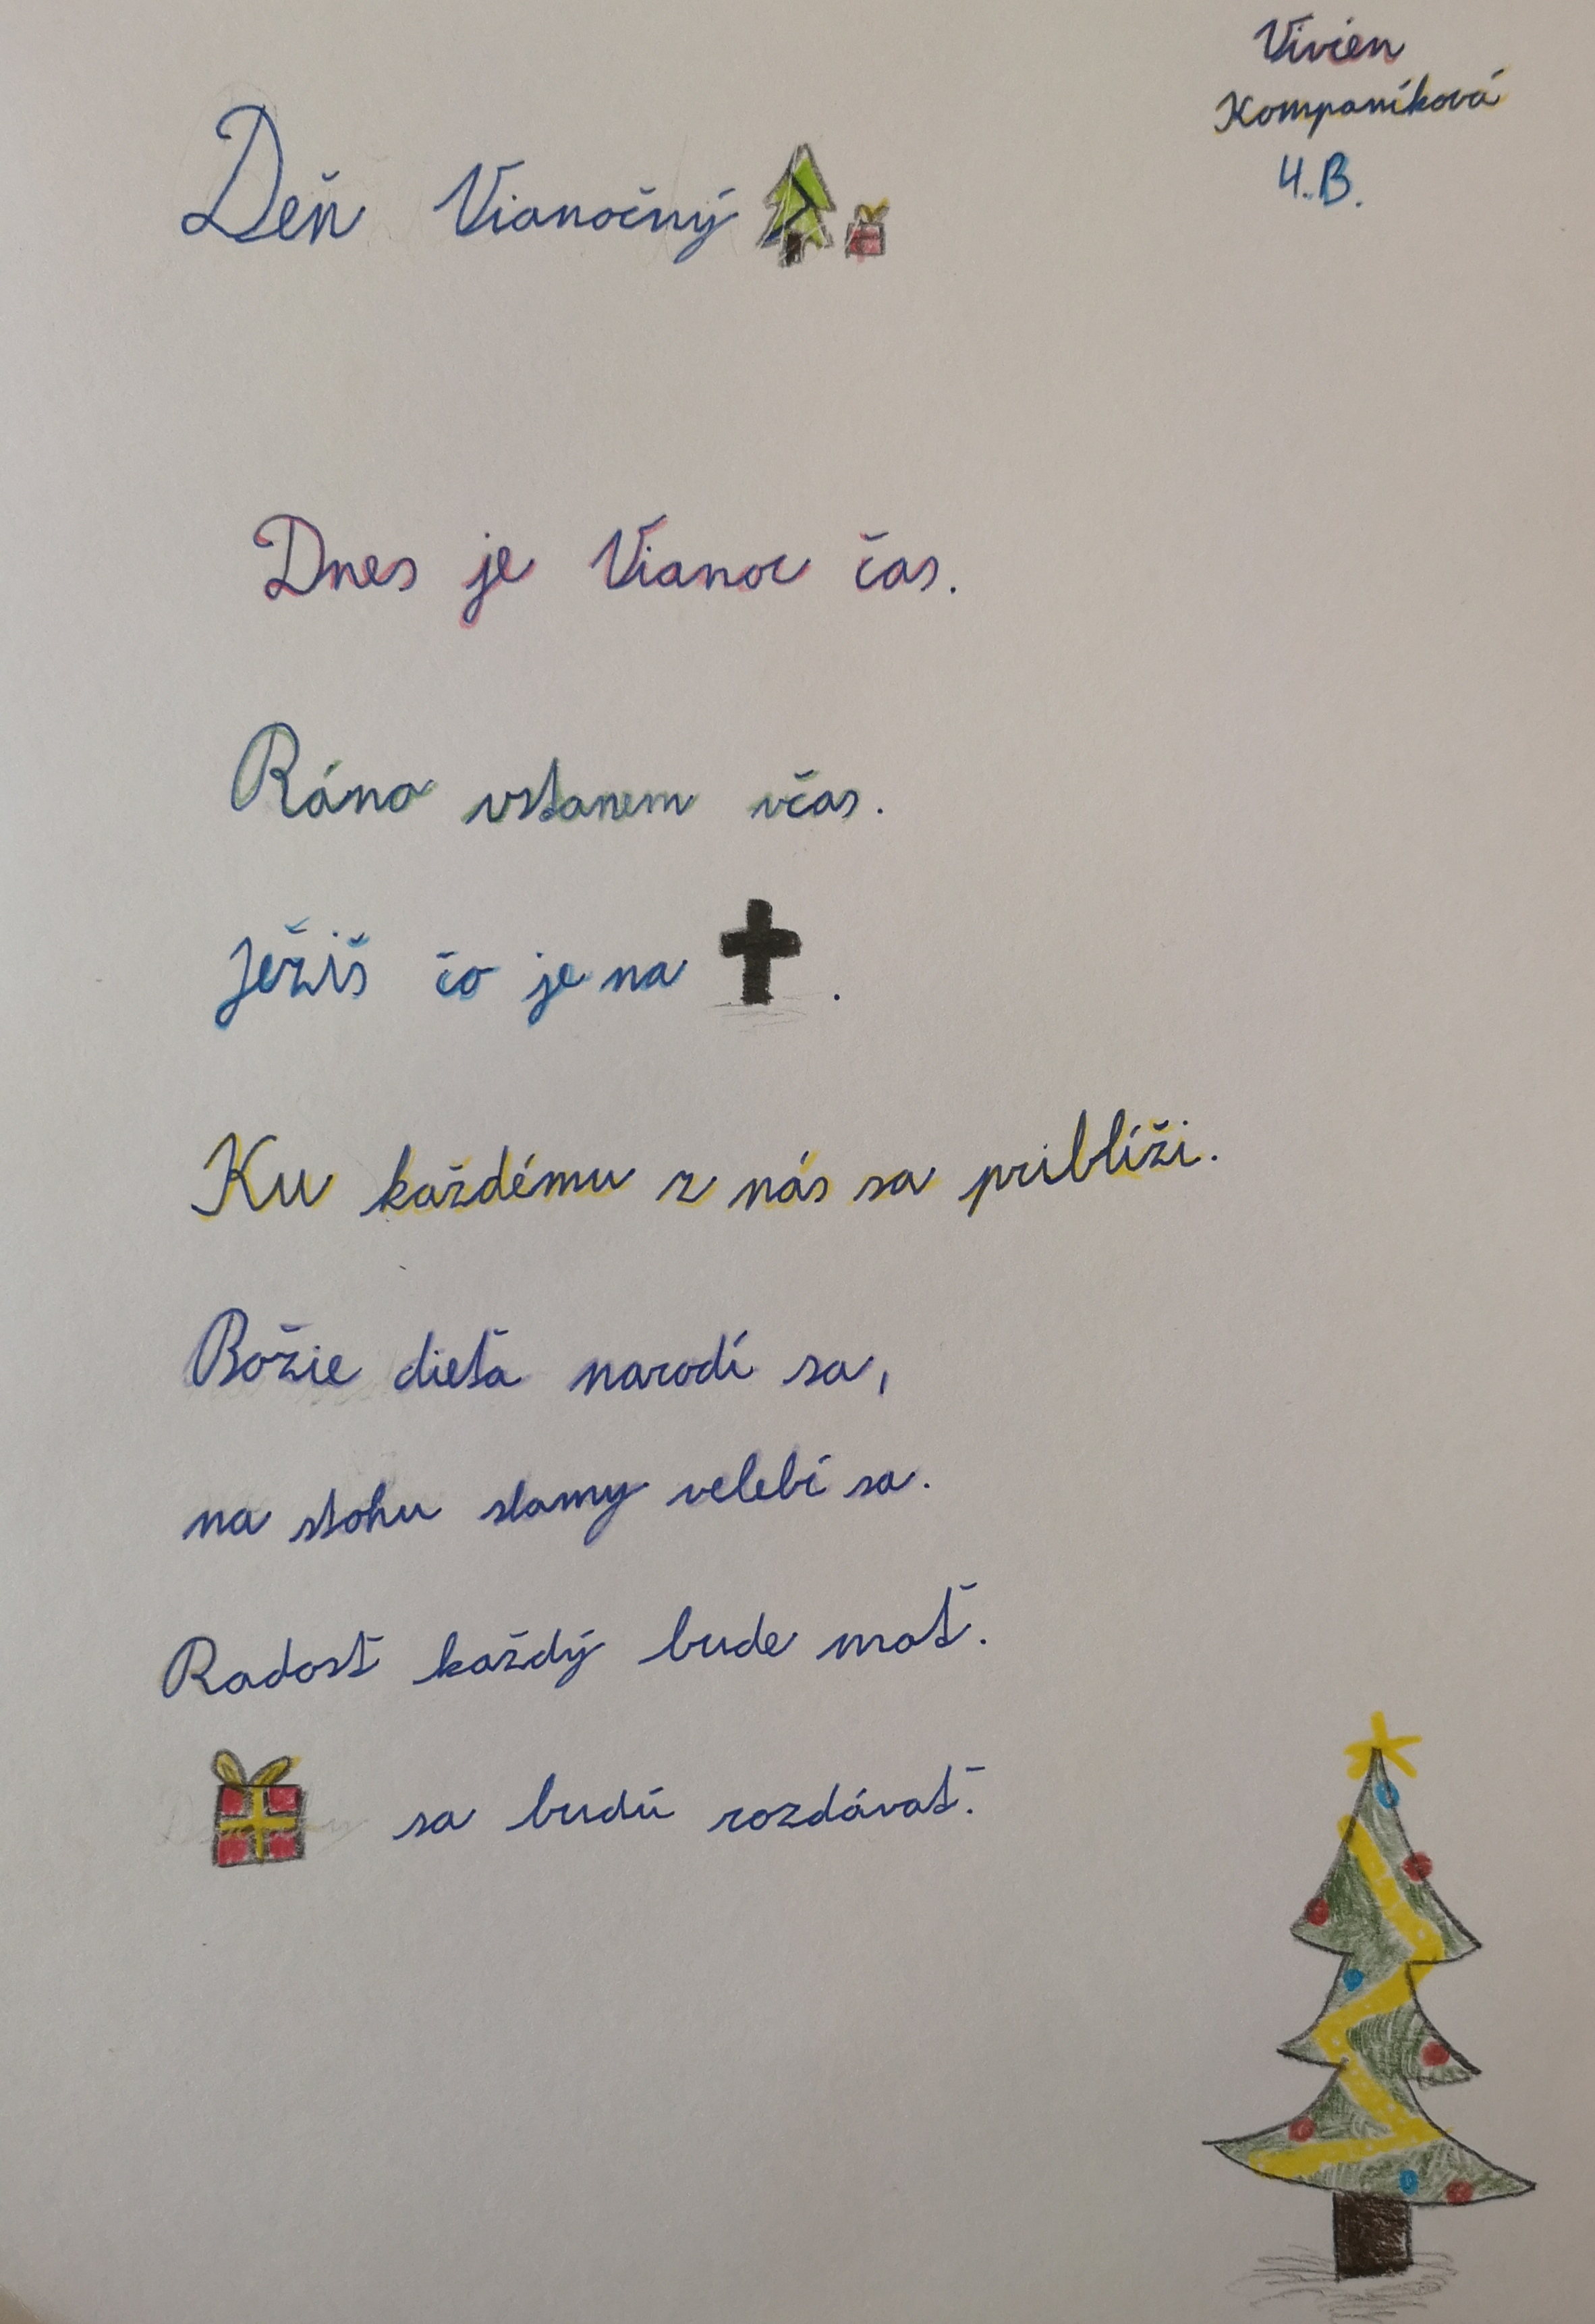 Vivien
Kompaníková
4.B.
Deň Vianočný
Dnes je Vianoc čas.
Ráno vstanem včas.
Ježiš čo je na .
Ku každému z nás sa priblíži.
Božie dieťa narodí sa,
na stohu slamy velebí sa.
Radosť každý bude mať.
sa budú rozdávať.